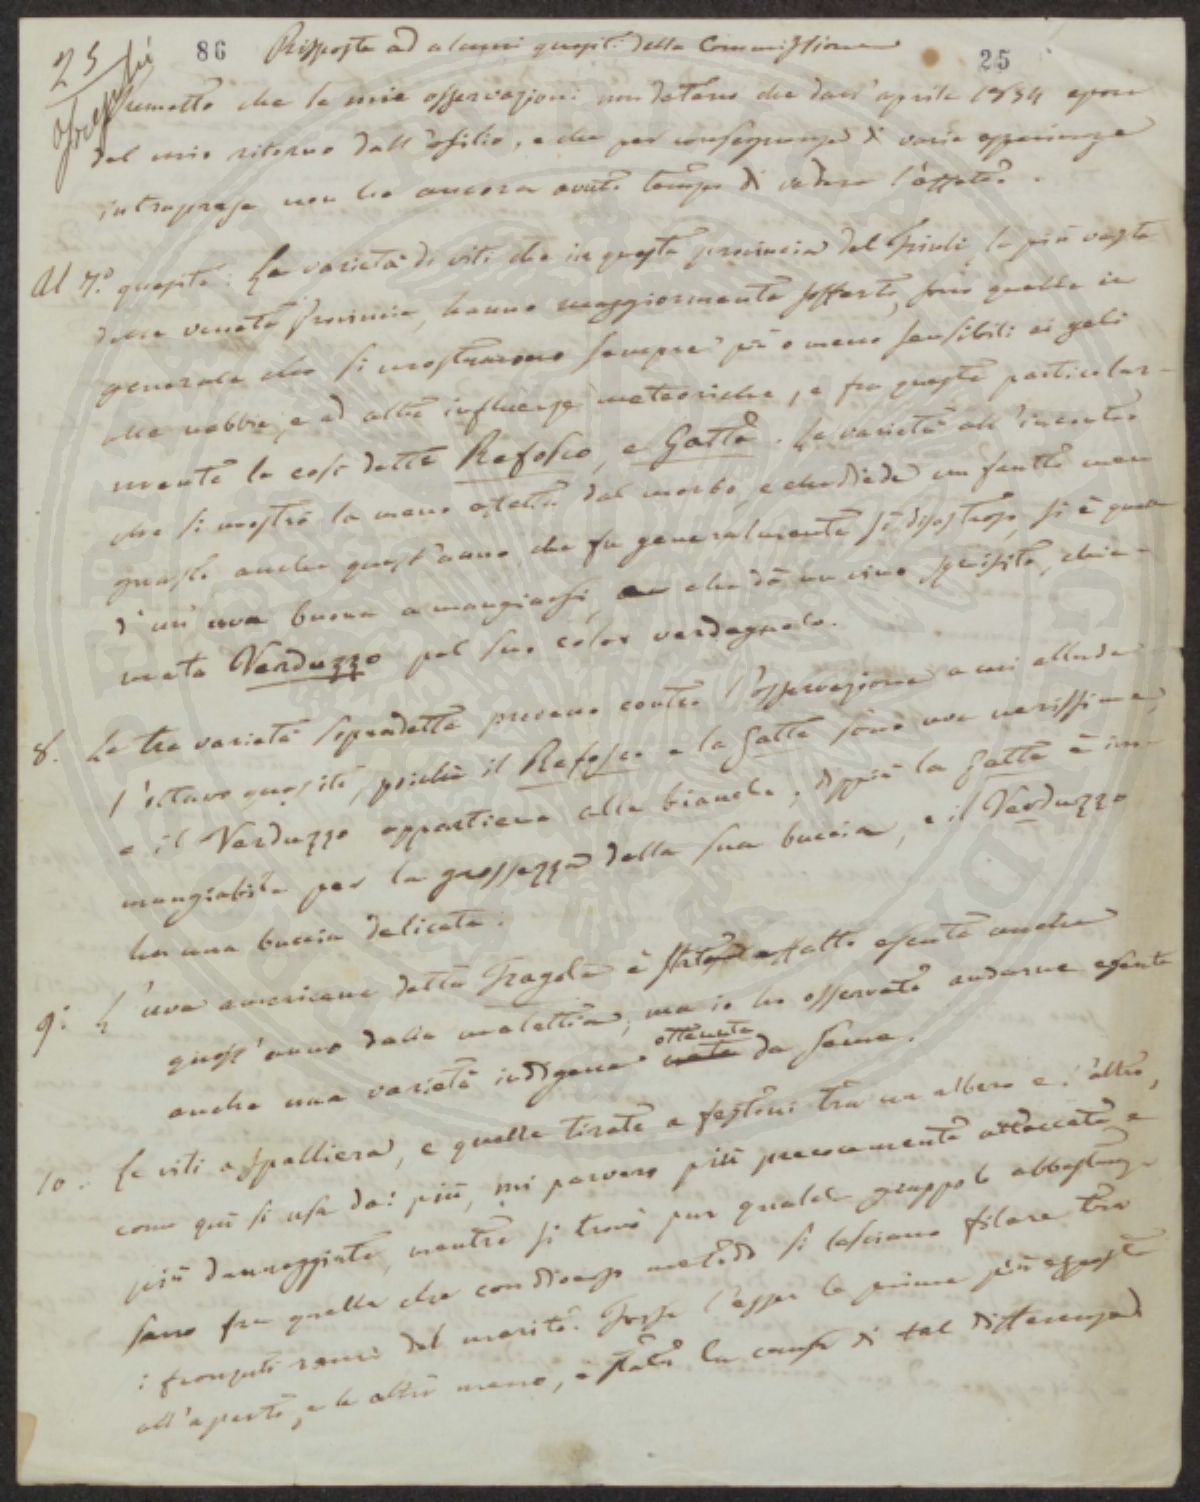 25
86
25
Risposta ad alcuni quesiti della Commissione
Premetto che le mie osservazioni non datano che dall'aprile 1854 epoca
del mio ritorno dall'esilio, e che per conseguenza di varie esperienze
intraprese non ho ancora avuto tempo di vedere l'effetto.
Al 7.º quesito: Le varietà di viti che in questa provincia del Friuli, la più vasta
delle venete Provincie, hanno maggiormente sofferto, sono quelle in
generale che si mostrarono sempre più o meno sensibili ai geli
alle nebbie, e ad altre influenze meteoriche, e fra queste particolar-
mente le così dette Refosco, e Gatta. La varietà all'incontro
che si mostrò la meno attaccata dal morbo, e che diede un frutto men
guasto anche quest'anno, che fu generalmente sì disastroso, si è quella
d'un'uva buona a mangiarsi, che dà un vino squisito, chia-
mata Verduzzo pel suo color verdognolo.
8. Le tre varietà sopradette provano contro l'osservazione a cui allude
l'ottavo quesito, poichè il Refosco e la Gatta sono uve nerissime,
e il Verduzzo appartiene alle bianche; dippiù la Gatta è im-
mangiabile per la grossezza della sua buccia, e il Verduzzo
ha una buccia delicata.
9. L'uva americana detta Fragola è stata affatto esente anche
quest'anno dalla malattia, ma io ho osservato andarne esente
anche una varietà indigena ottenuta da seme.
10. Le viti a spalliera, e quelle tirate a festoni tra un albero e l'altro,
come quì si usa dai più, mi parvero più precocemente attaccate e
più danneggiate, mentre si trovò pur qualche grappolo abbastanza
sano fra quelle che con diverso metodo si lasciano filare tra
i fronzuti rami del marito. Forse l'esser le prime più esposte
all'aperto, e le altre meno, è stata la causa di tal differenza.